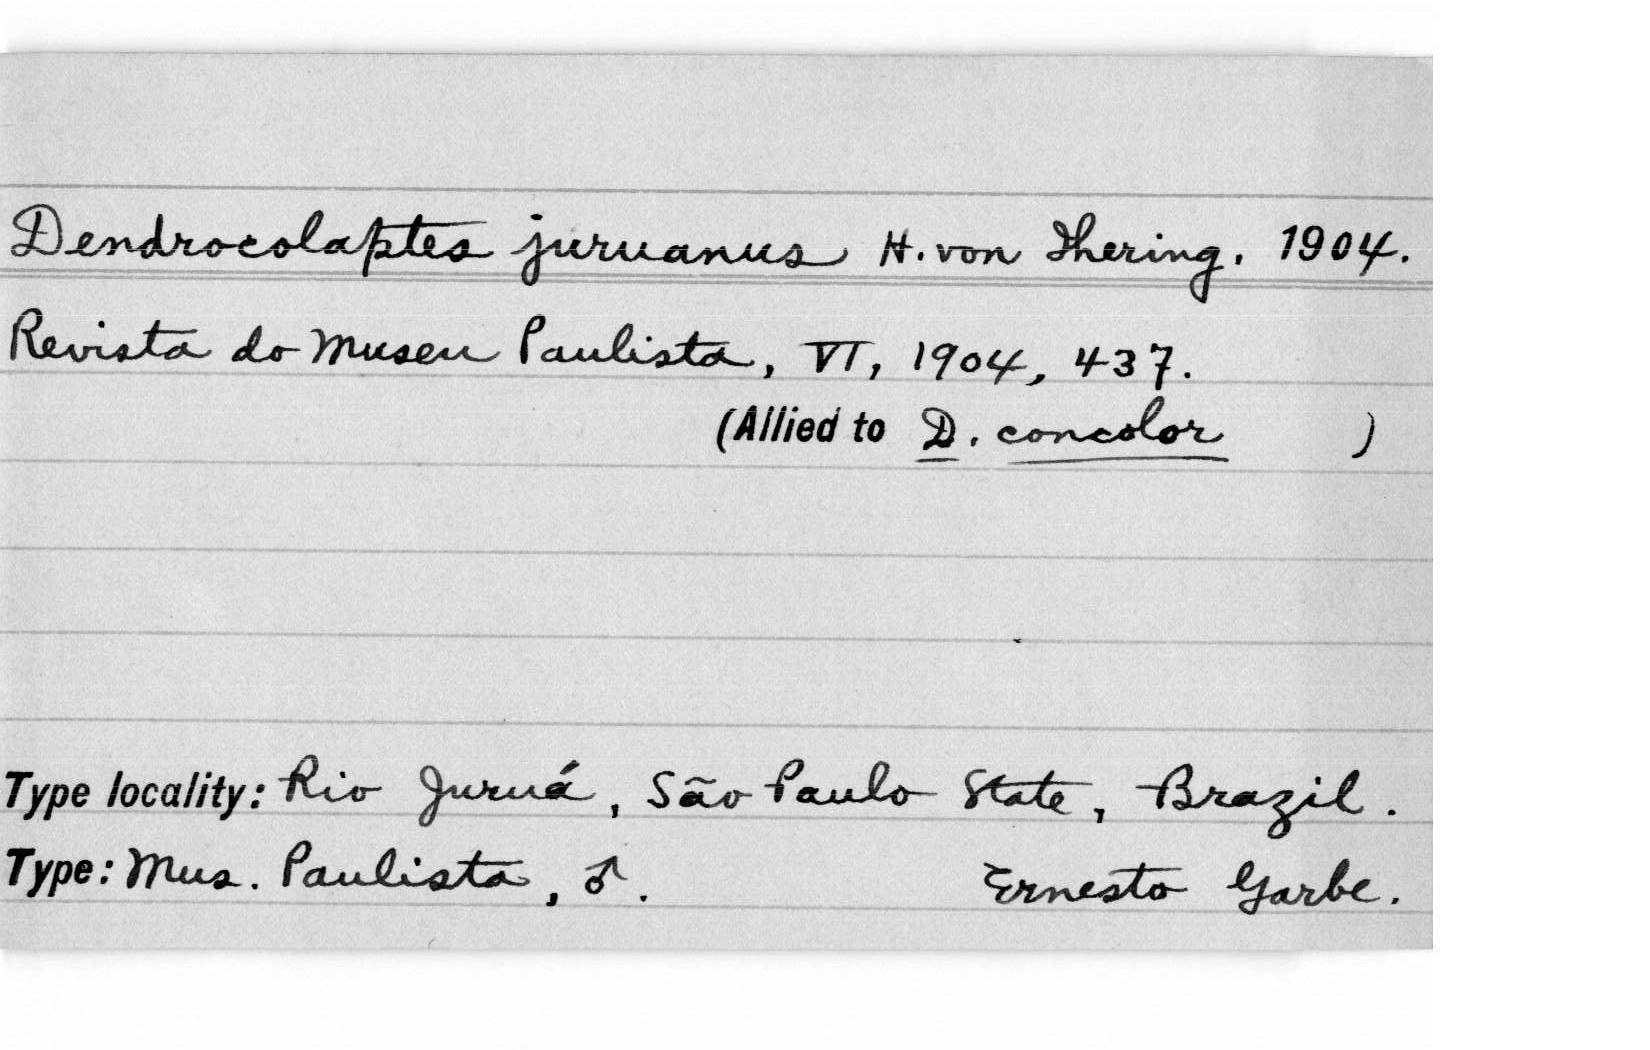 Dendrocolaptes juruanus H. von Ihering. 1904.
Revista do Museu Paulista, VI, 1904, 437.
(Allied to D. concolor )
Type locality: Rio Juruá, São Paulo State, Brazil.
Type: Mus. Paulista, ♂. Ernesto Garbe.